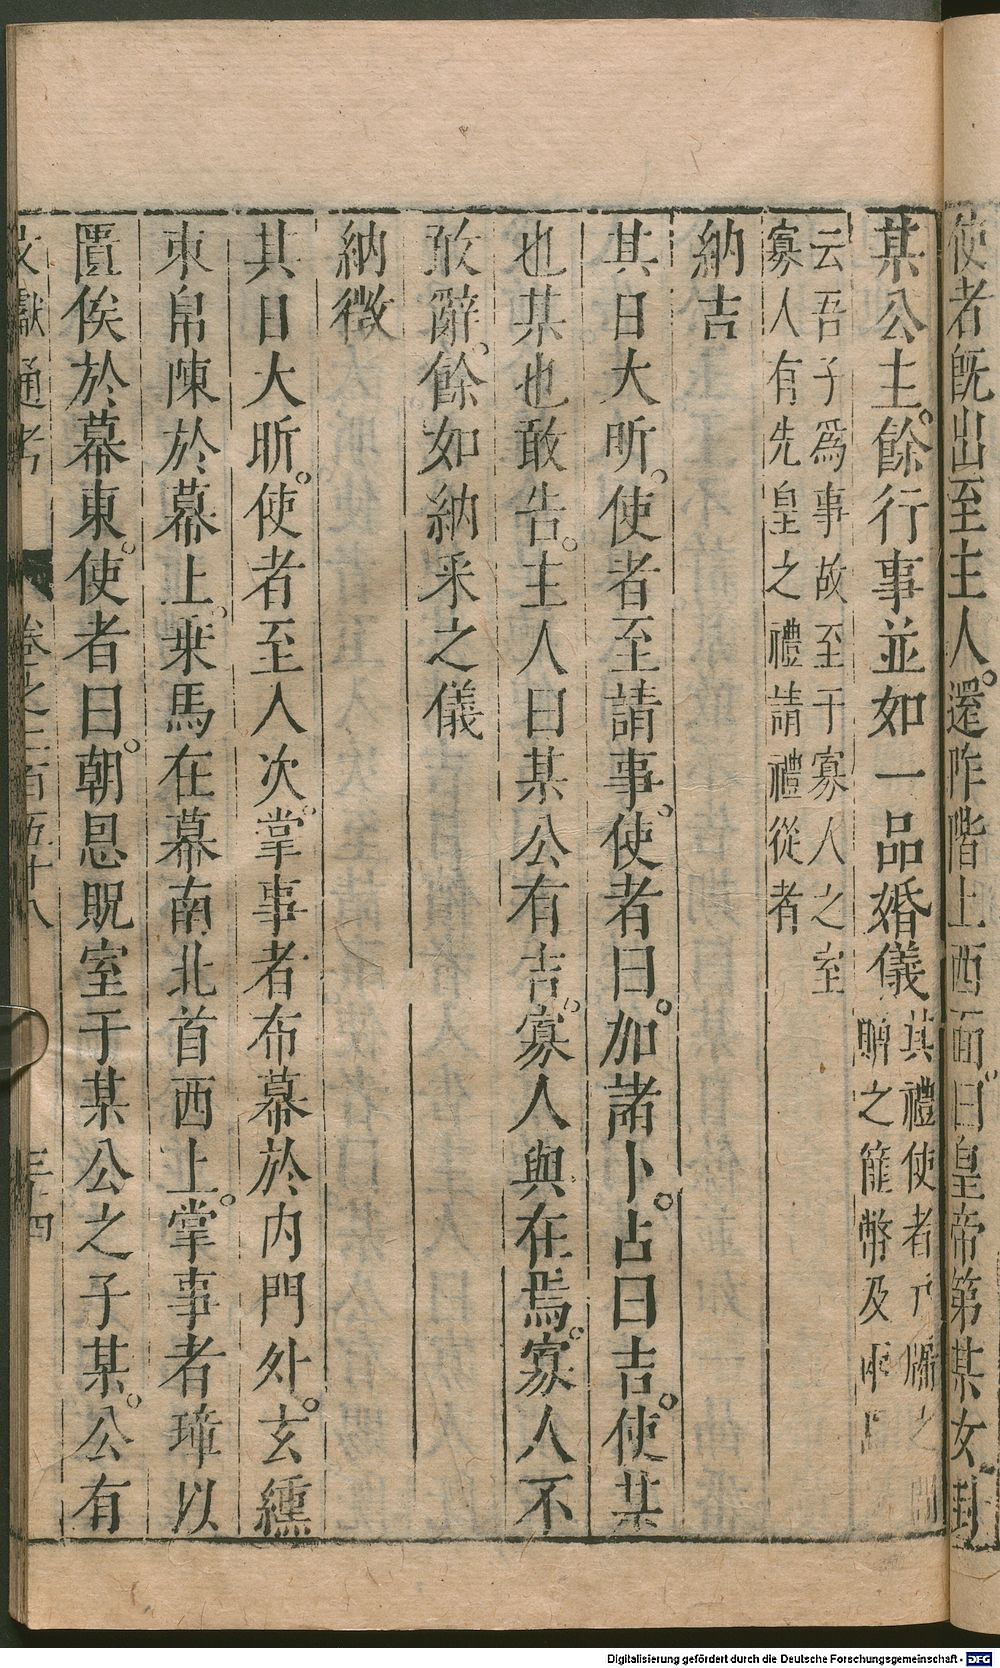 使者旣出至主人還阼階上西面曰皇帝第某女封
某公主餘行事並如一品婚儀其禮使者
贈之篚幣及
云吾子爲事故至于寡人之室
寡人有先皇之禮請禮從者
納吉
其日大昕使者至請事使者曰加諸卜占曰吉使某
也某也敢告主人曰某公有吉寡人與在焉寡人不
敢辭餘如納采之儀
納徵
其日大昕使者至入次掌事者布幕於內門外玄纁
束帛陳於幕上乗馬在幕南北首西上掌事者璋以
匱俟於幕東使者曰朝恩貺室于某公之子某公有
文獻通考 卷之二百五十八 三十四
Digitalisierung gefördert durch die Deutsche Forschungsgemeinschaft - DFG